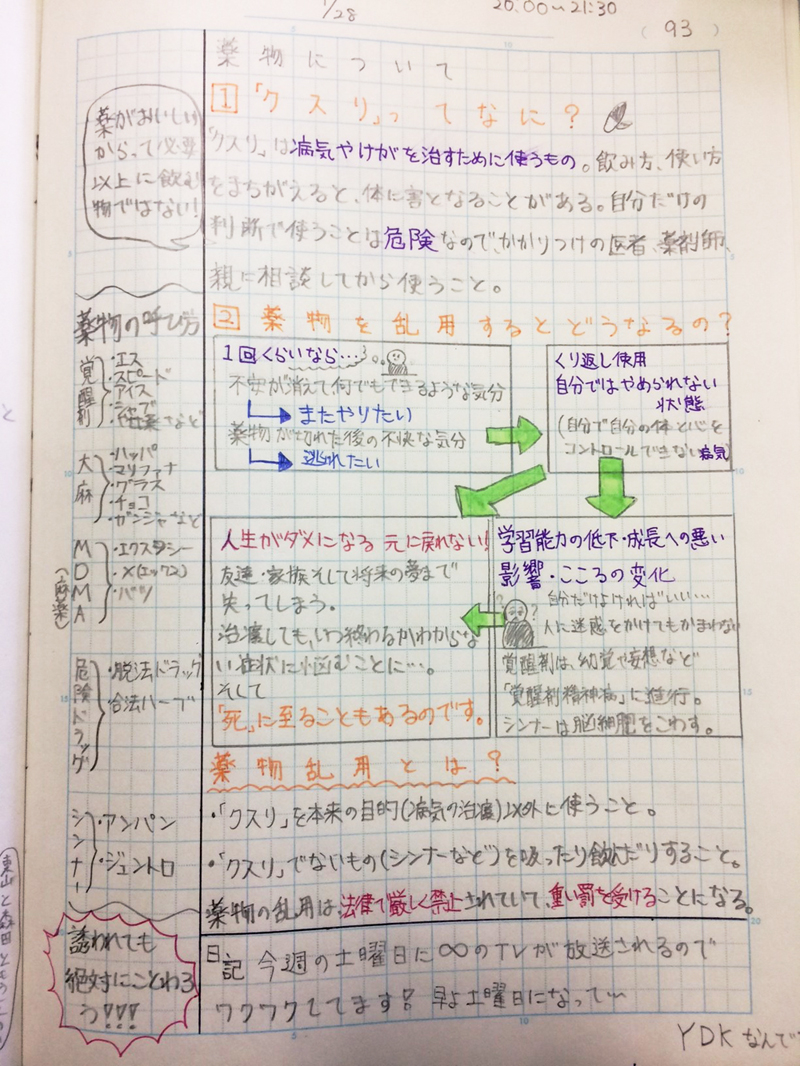 1/28
20:00〜21:30
(93)
薬物について
薬がおいしい
からって必要
以上に飲む
物ではない!
1 「クスリ」ってなに?
「クスリ」は病気やけがを治すために使うもの。飲み方、使い方
をまちがえると、体に害となることがある。自分だけの
判断で使うことは危険なので、かかりつけの医者、薬剤師、
親に相談してから使うこと。
薬物の呼び方
覚醒剤
・エス
・スピード
・アイス
・シャブ
など
大麻
・ハッパ
・マリファナ
・グラス
・チョコ
・ガンジャなど
MDMA
(麻薬)
・エクスタシー
・X(エックス)
・バツ
危険ドラッグ
・脱法ドラッグ
・合法ハーブ
シンナー
・アンパン
・ジュントロ
誘われても
絶対にことわろ
う!!!
2 薬物を乱用するとどうなるの?
1回くらいなら…
不安が消えて何でもできるような気分
またやりたい
薬物が切れた後の不快な気分
逃れたい
くり返し使用
自分ではやめられない
状態
(自分で自分の体と心を
コントロールできない病気)
学習能力の低下・成長への悪い
影響・こころの変化
自分だけよければいい…
人に迷惑をかけてもかまわない
覚醒剤は、幼覚や妄想など
「覚醒剤精神病」に進行。
シンナーは脳細胞をこわす。
人生がダメになる 元に戻れない!
友達・家族そして将来の夢まで
失ってしまう。
治療しても、いつ終わるかわからな
い症状に悩むことに…。
そして
「死」に至ることもあるのです。
薬物乱用とは?
・「クスリ」を本来の目的(病気の治療)以外に使うこと。
・「クスリ」でないもの(シンナーなど)を吸ったり飲んだりすること。
薬物の乱用は、法律で厳しく禁止されていて、重い罰を受けることになる。
日記 今週の土曜日に∞のTVが放送されるので
ワクワクしてます! 早よ土曜日になって〜
YDKなんで